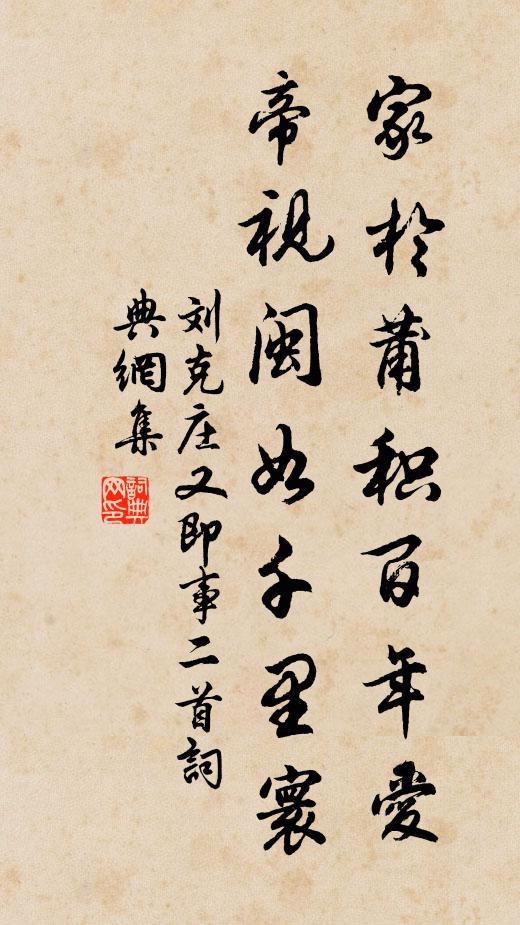 家於莆积百年爱
帝视闽如千里寰
刘克庄又即事二首詞
典網集
詞典網印